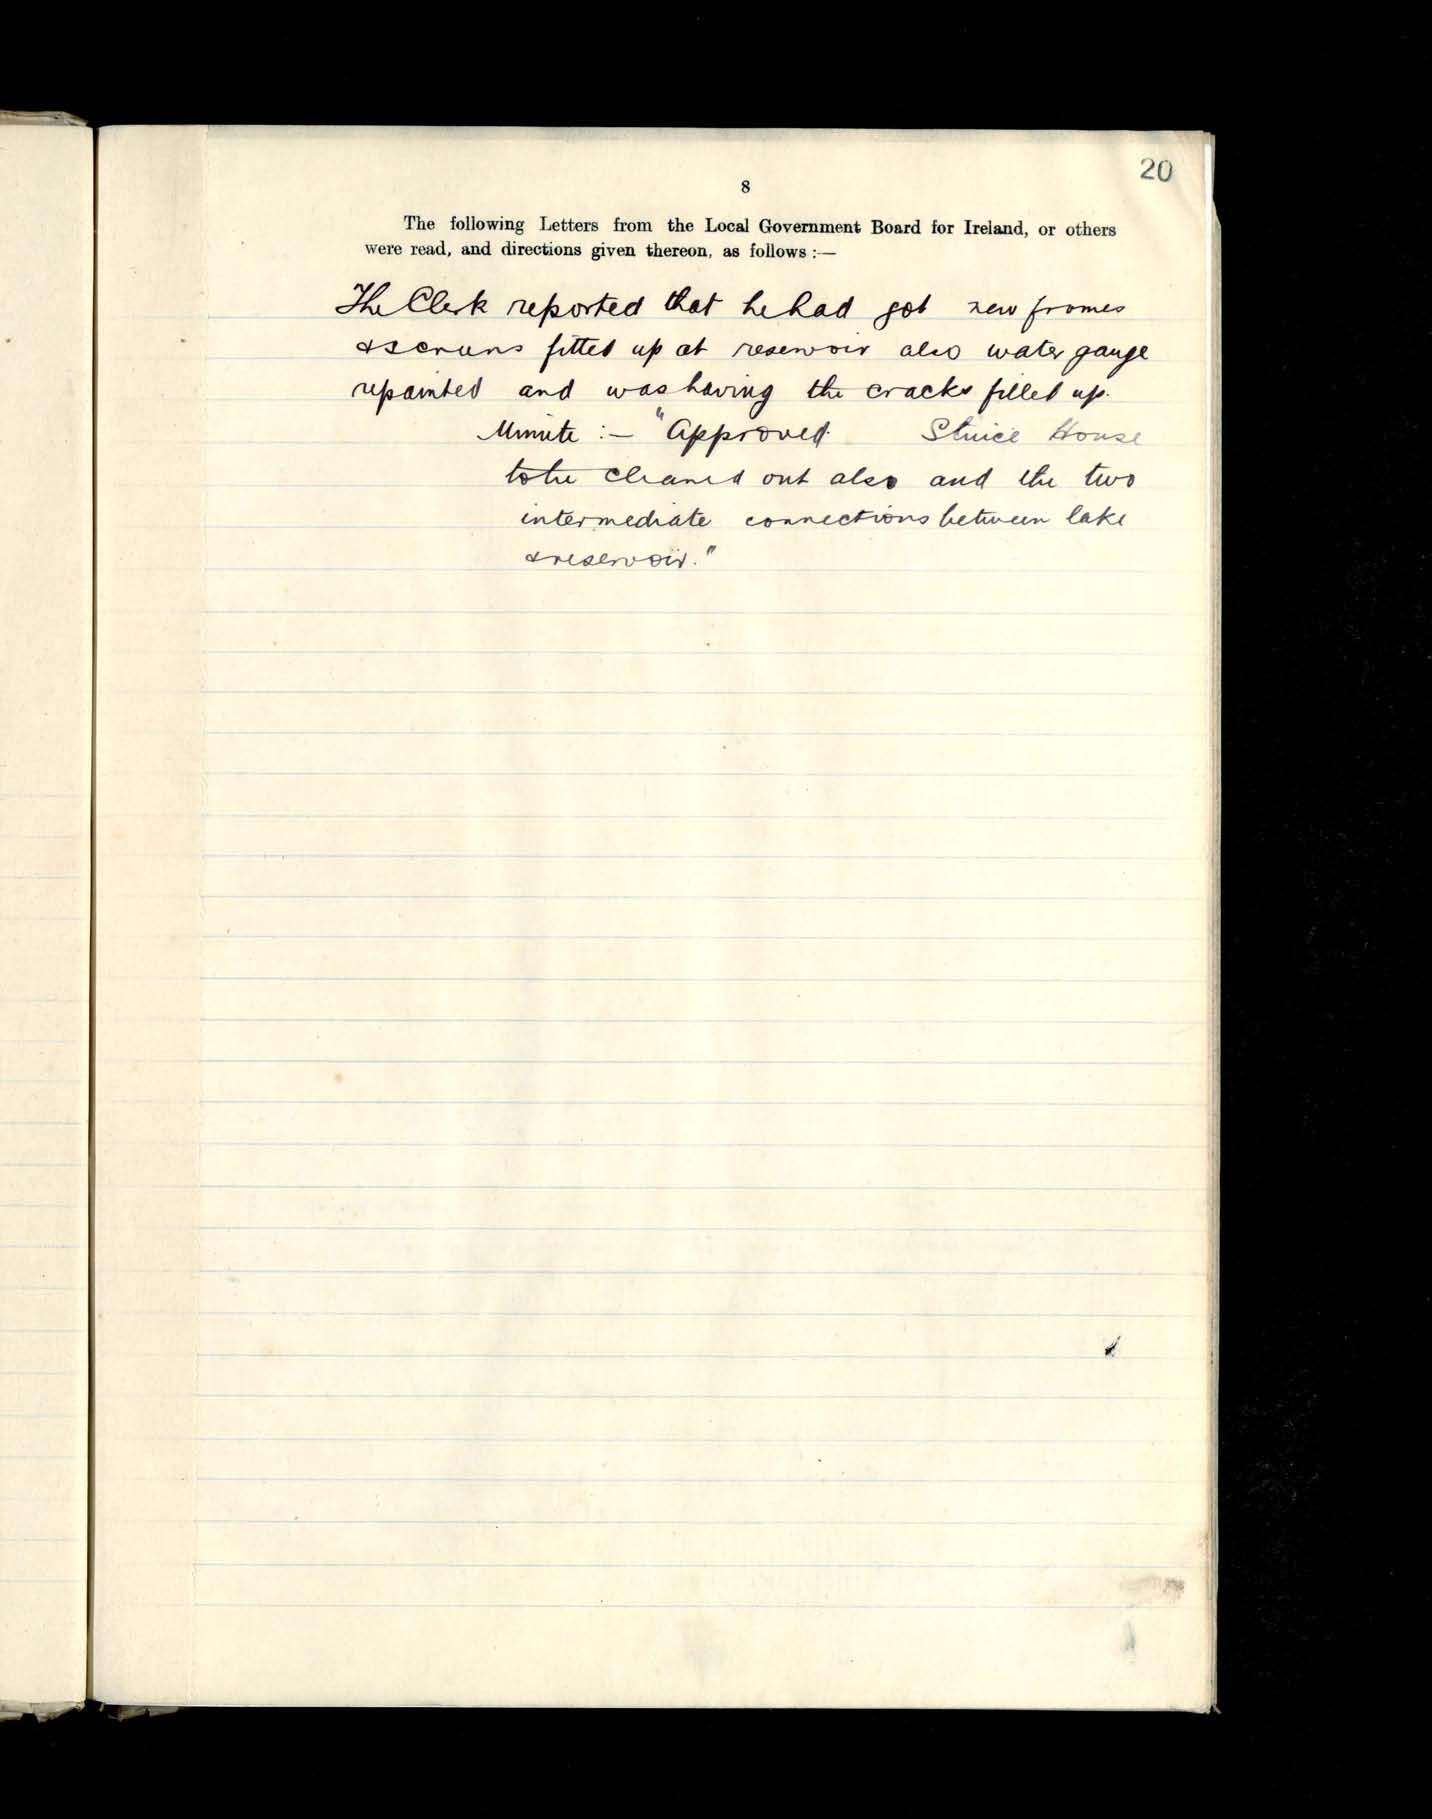 20
8
The following Letters from the Local Government Board for Ireland, or others
were read, and directions given thereon, as follows :—
The Clerk reported that he had got new frames
& screens fitted up at reservoir also water gauge
repainted and was having the cracks filled up.
Minute :— "Approved. Sluice House
to be cleaned out also and the two
intermediate connections between lake
& reservoir."